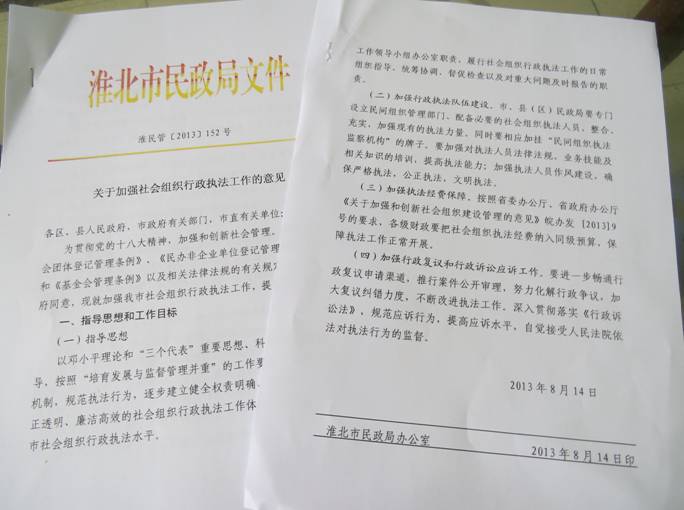 淮北市民政局文件
淮民管〔2013〕152 号
关于加强社会组织行政执法工作的意见
各区、县人民政府，市政府有关部门，市直有关单位：
为贯彻党的十八大精神，加强和创新社会管理，
会团体登记管理条例》、《民办非企业单位登记管理
和《基金会管理条例》以及相关法律法规的有关规定
府同意，现就加强我市社会组织行政执法工作，提
一、指导思想和工作目标
（一）指导思想
以邓小平理论和“三个代表”重要思想、科
导，按照“培育发展与监督管理并重”的工作要
机制，规范执法行为，逐步建立健全权责明确、
正透明、廉洁高效的社会组织行政执法工作体
市社会组织行政执法水平。
工作领导小组办公室职责，履行社会组织行政执法工作的日常
组织指导、统筹协调、督促检查以及对重大问题及时报告的职
责。
（二）加强行政执法队伍建设。市、县（区）民政局要专门
设立民间组织管理部门，配备必要的社会组织执法人员，整合、
充实，加强现有的执法力量。同时要相应加挂“民间组织执法
监察机构”的牌子。要加强对执法人员法律法规、业务技能及
相关知识的培训，提高执法能力；加强执法人员作风建设，确
保严格执法，公正执法，文明执法。
（三）加强执法经费保障。按照省委办公厅、省政府办公厅
《关于加强和创新社会组织建设管理的意见》皖办发[2013]9
号的要求，各级财政要把社会组织执法经费纳入同级预算，保
障执法工作正常开展。
（四）加强行政复议和行政诉讼应诉工作。要进一步畅通行
政复议申请渠道，推行案件公开审理，努力化解行政争议，加
大复议纠错力度，不断改进执法工作。深入贯彻落实《行政诉
讼法》，规范应诉行为，提高应诉水平，自觉接受人民法院依
法对执法行为的监督。
2013 年 8 月 14 日
淮北市民政局办公室 2013 年 8 月 14 日印